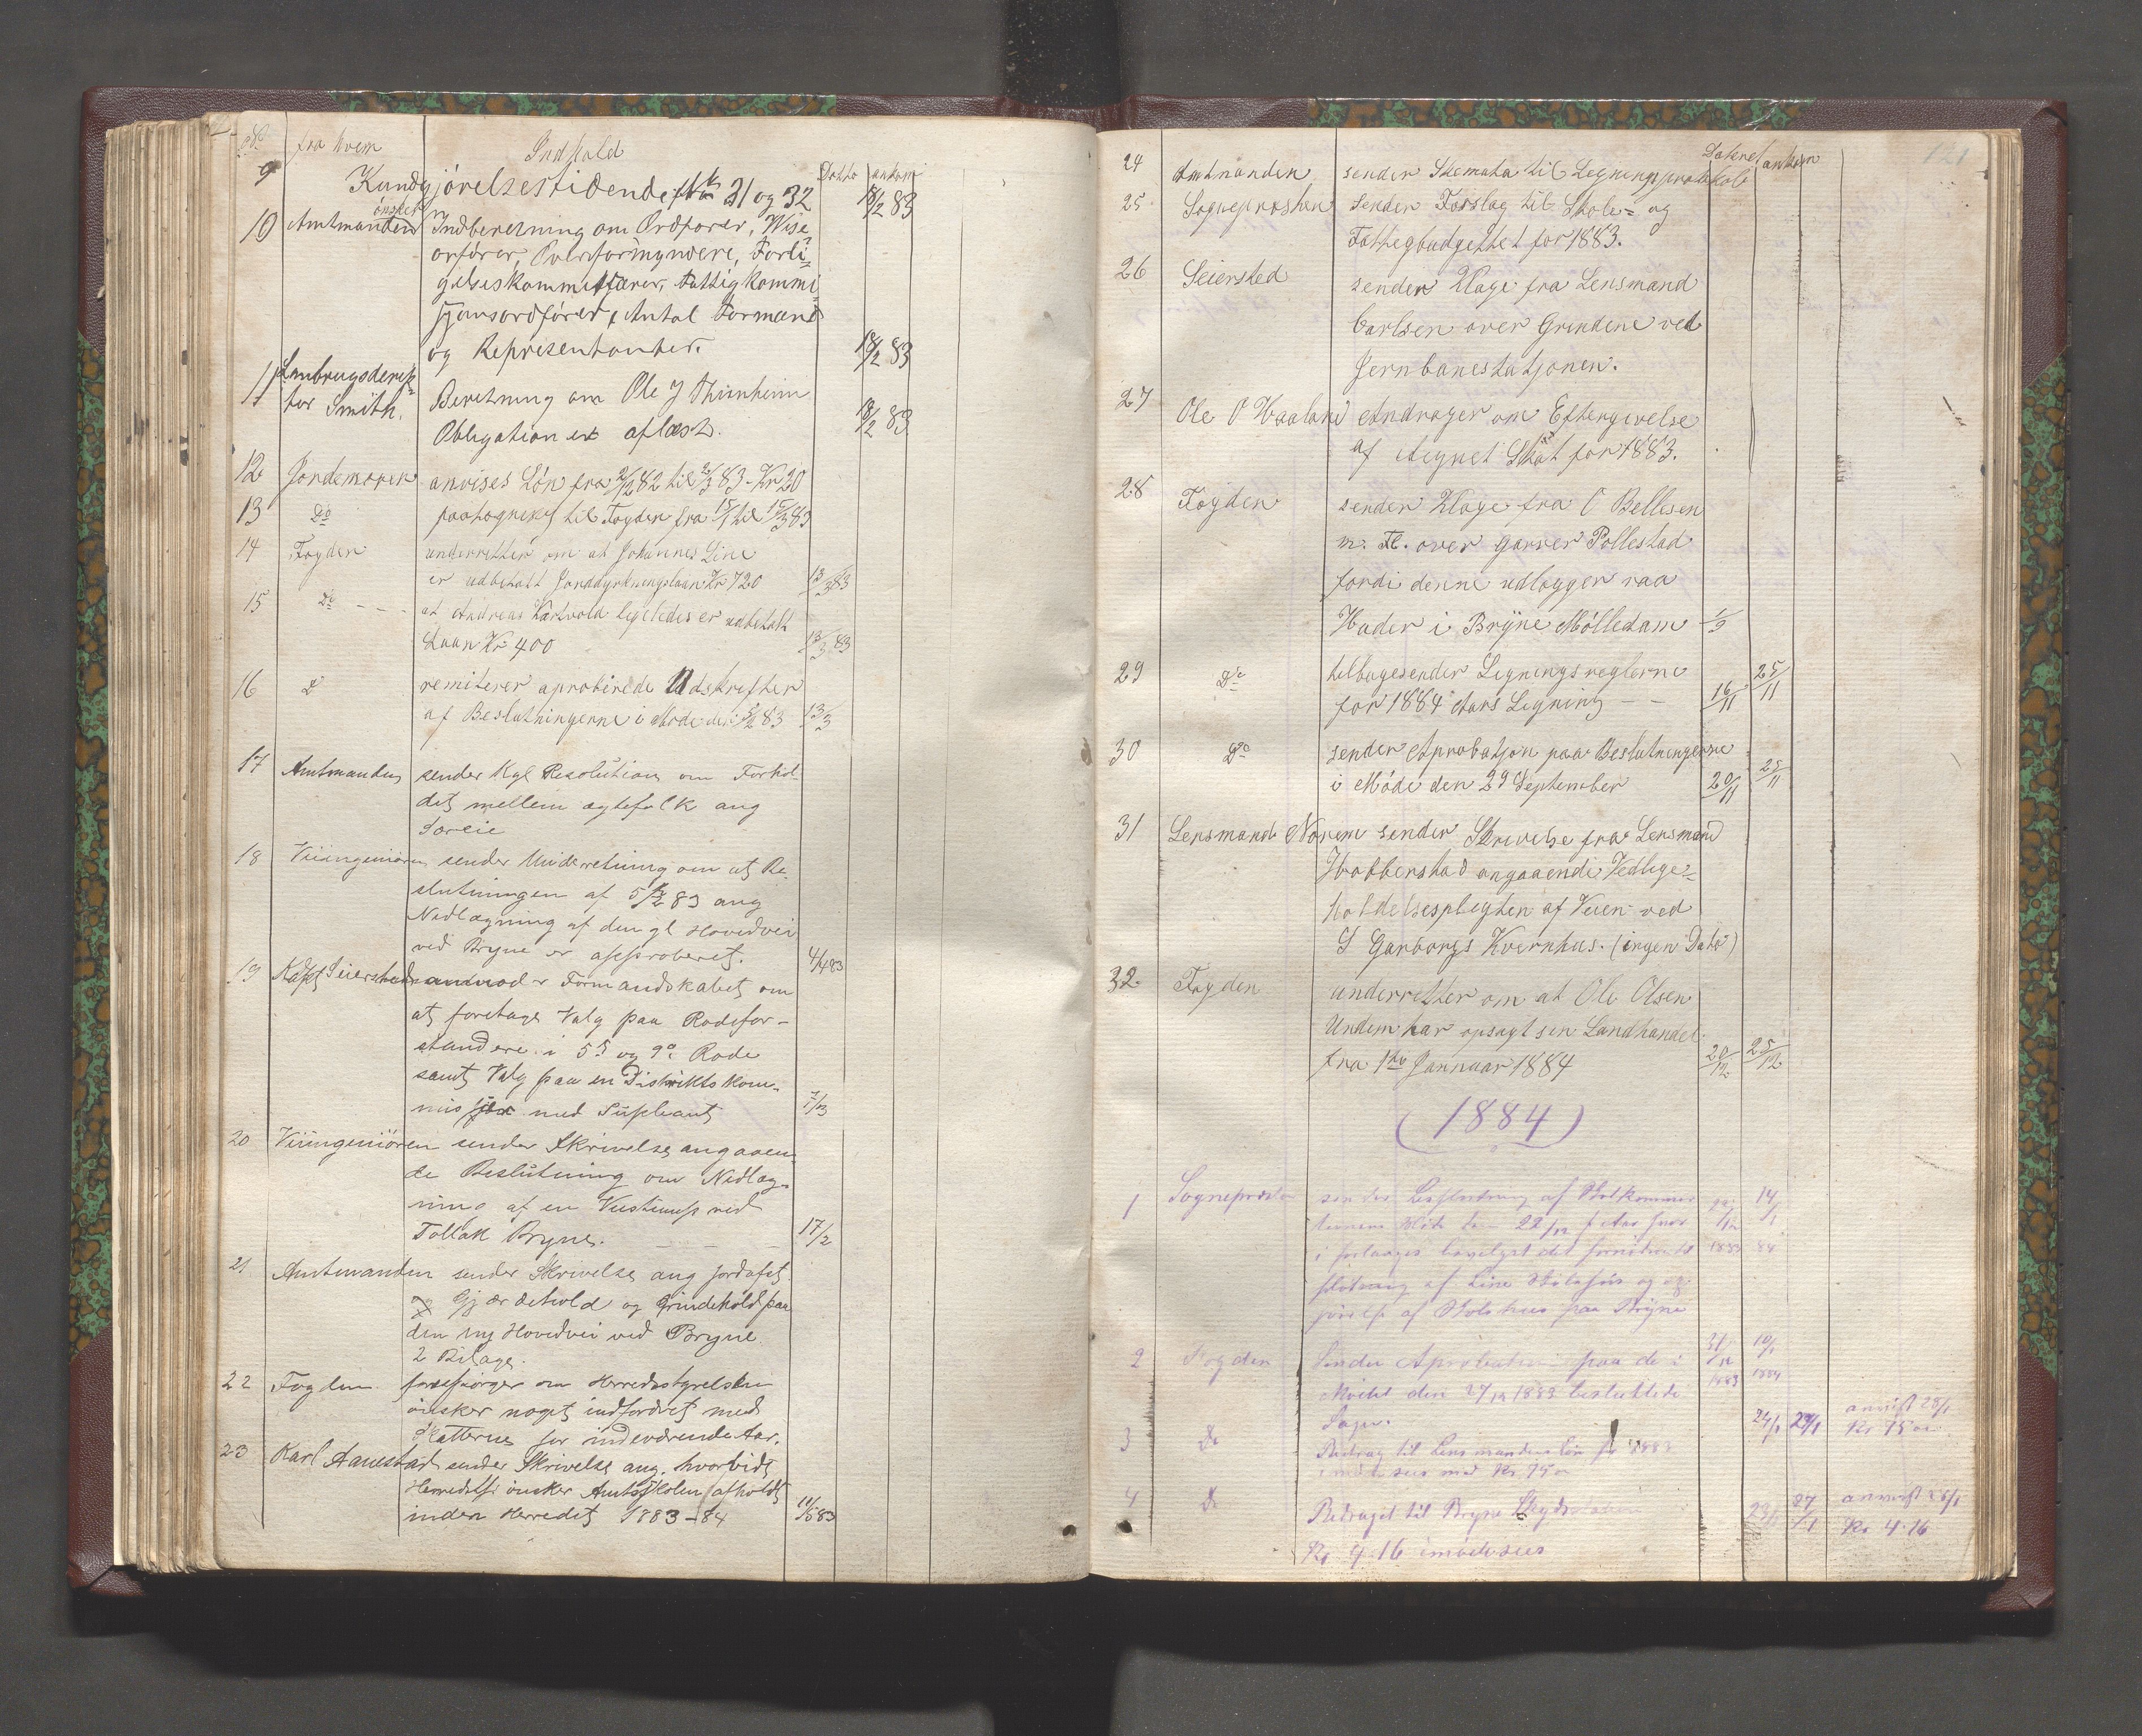 No fra hvem Indhold Datto ankom
9 Kundgjørelsestidende No 21 og 32 18/2 83
10 Amtmanden ønsker Indberetning om Ordfører, Wise
orfører, Overformyndere, Forli-
gelseskommissærer, Fattigkommi-
sjonsordfører, Antal Formænd
og Representanter. 18/2 83
11 Lanbrugsderek-
tør Smith. Beretning om Ole J Thunheim
Obligation er aflæst. 18/2 83
12 Jordemoren anvises Løn fra 2/2 82 til 2/3 83 - Kr 20
13 Do paategnes til Fogden fra 15/1 til 15/3 83
14 Fogden underretter om at Johannes Line
er udbetalt Jorddyrkningslaan Kr 720 13/3 83
15 Do - - - at Andreas Kartvold ligeledes er udbetalt
Laan Kr 400 13/3 83
16 Do remiterer aproberede Udskrefter
af Beslutningerne i Møde den 5/2 83 13/3
17 Amtmanden sender Kgl Resolution om Forhol-
det mellem ægtefolk ang
Særeie
18 Veiingeniøren sender Underretning om at Be-
slutningen af 5/2 83 ang
Nedlægning af den gl Hovedvei
ved Bryne er approberet. 4/4 83
19 Kapt Seiersted anmoder Formandskabet om
at foretage Valg paa Rodefor-
standere i 5te og 9de Rode
samt Valg paa en Distrikts kom-
missjon med Supleant 7/3
20 Veiingeniøren sender Skrivelse angaaen-
de Beslutning om Nedlæg-
ning af en Veistump ved
Tollak Bryne. - - - 17/2
21 Amtmanden sender Skrivelse ang Jordafst
og Gjærdehold og Grindehold paa
den ny Hovedvei ved Bryne
2 Bilage.
22 Fogden forespørger om Herredsstyrelsen
ønsker noget indfordret med
Skatterne for indeværende Aar.
23 Karl Aanestad sender Skrivelse ang. hvorvidt
Herredst ønsker Amtsskolen afholdt
inden Herredet 1883-84 11/5 83
121
Dateret ankom
24 Amtmanden sender Skemata til Legningsprotokol
25 Sogneprosten sender Forslag til Skole- og
Fattegbudgettet for 1883.
26 Seiersted sender Klage fra Lensmand
Carlsen over Grindene ved
Jernbanestatjonen.
27 Ole O Haaland Andrager om Eftergivelse
af Aegnet Skat for 1883.
28 Fogden sender Klage fra O Bellesen
m. Fl. over garver Pollestad
fordi denne udlægger raa
Huder i Bryne Mølledam 1/9
29 Do tilbagesender Legningsreglerne
for 1884 Aars Legning - - 16/11 25/11
30 Do sender Aprobatjon paa Beslutningerne
i Møde den 29 September 20/11 25/11
31 Lensmand Norem sender Skrivelse fra Lensmand
Hobberstad angaaende Vedlige-
holdelsesplegten af Veien ved
S Garborgs Kvernhus. (ingen Dato)
32 Fogden underretter om at Ole Olsen
Undem har opsagt sen Landhandel
fra 1ste Januar 1884 20/12 25/12
(1884)
1 Sogneprest sender Beslutning af Skolkommis
Møde den 22/12 f Aar hvor 14/1
i forlanges bevilget det fornødne til 1883 84
fløtning af Line Skolehus og op-
førelse af Skolehus paa Bryne
2 Fogden Sender Aprobation paa de i 31/12 10/1
Mødet den 27/12 1883 besluttede 1883 1884
Sager.
3 Do Bidrag til Lensmandens løn for 1883 24/1 29/1 anvist 28/1
imødesees med Kr 75 Kr 75
4 Do Bidraget til Bryne Skydsstation 23/1 27/1 anvist 28/1
Kr 4.16 imødesees Kr 4.16